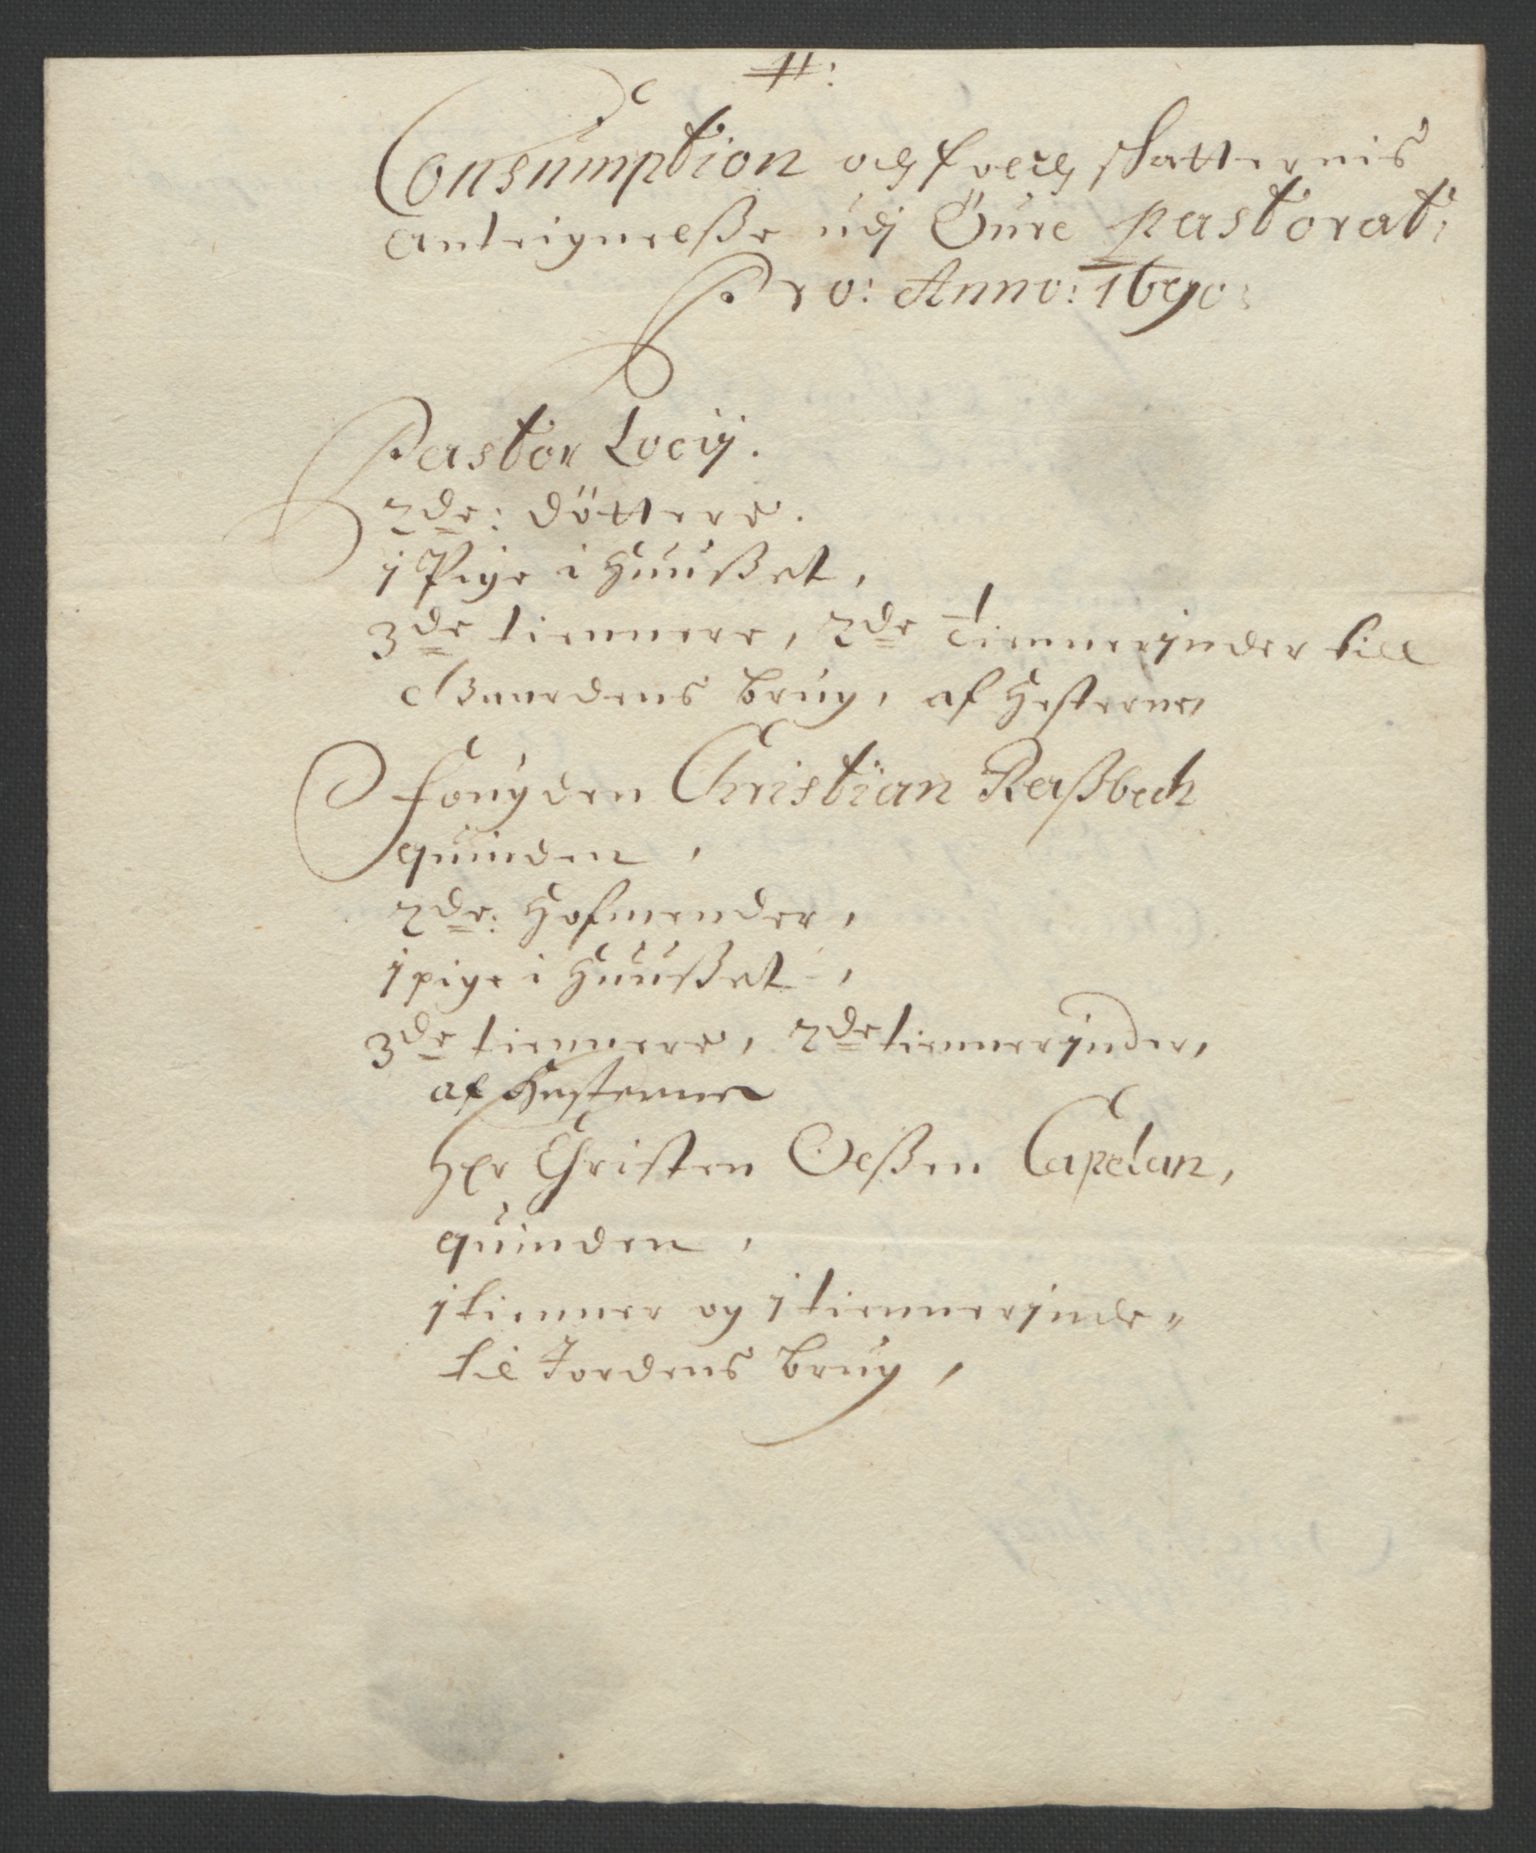 #:
Consumption och folch skatternis
Anteignelße udj Öure pastorat:
Pro: Anno: 1690:
Pastor Locij.
2de: döttere.
1 Pige i Huußet,
3de tiennere, 2de Tiennerinder till
Gaardens brug, af Hesterne,
Fougden Christian Raßbech
quinden,
2de: Hofmender,
1 pige i Huußet,
3de tiennere, 2de tiennerinder,
af Hesterne
Hr Christen Oelßen Capelan,
quinden,
1 tienner og 1 tiennerinde
til Jordens brug,